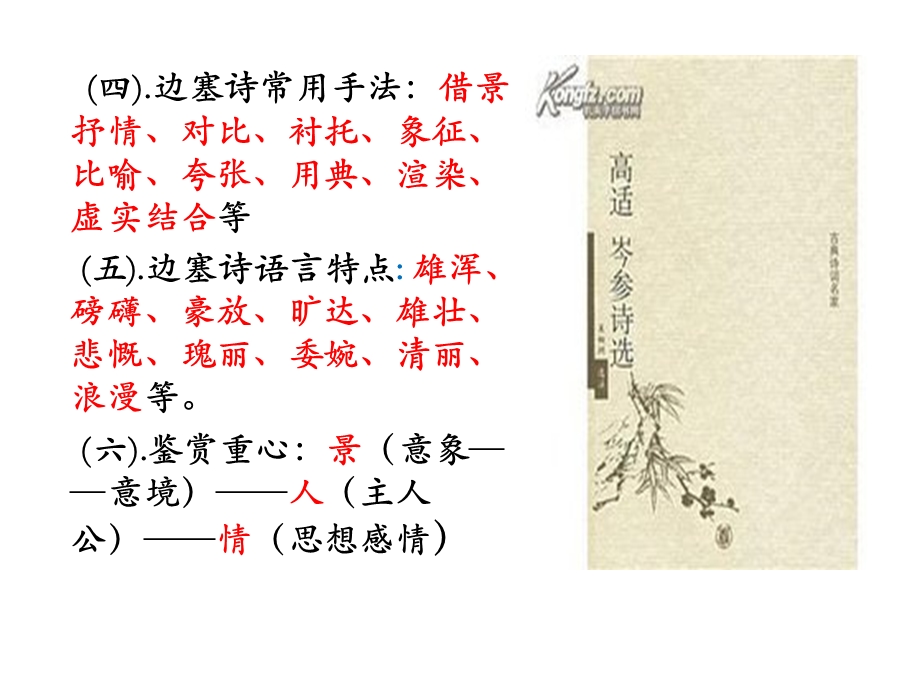 (四).边塞诗常用手法：借景
抒情、对比、衬托、象征、
比喻、夸张、用典、渲染、
虚实结合等
(五).边塞诗语言特点:雄浑、
磅礴、豪放、旷达、雄壮、
悲慨、瑰丽、委婉、清丽、
浪漫等。
(六).鉴赏重心：景（意象—
—意境）——人（主人
公）——情（思想感情）
Kongfz.com
高适 岑参诗选
古典诗词名家